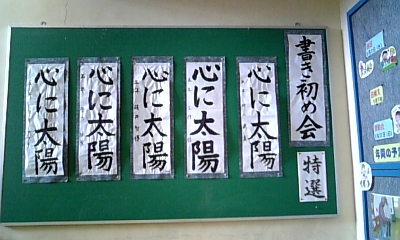 書き初め会
特選
心に太陽
心に太陽
心に太陽
心に太陽
心に太陽
年間の予